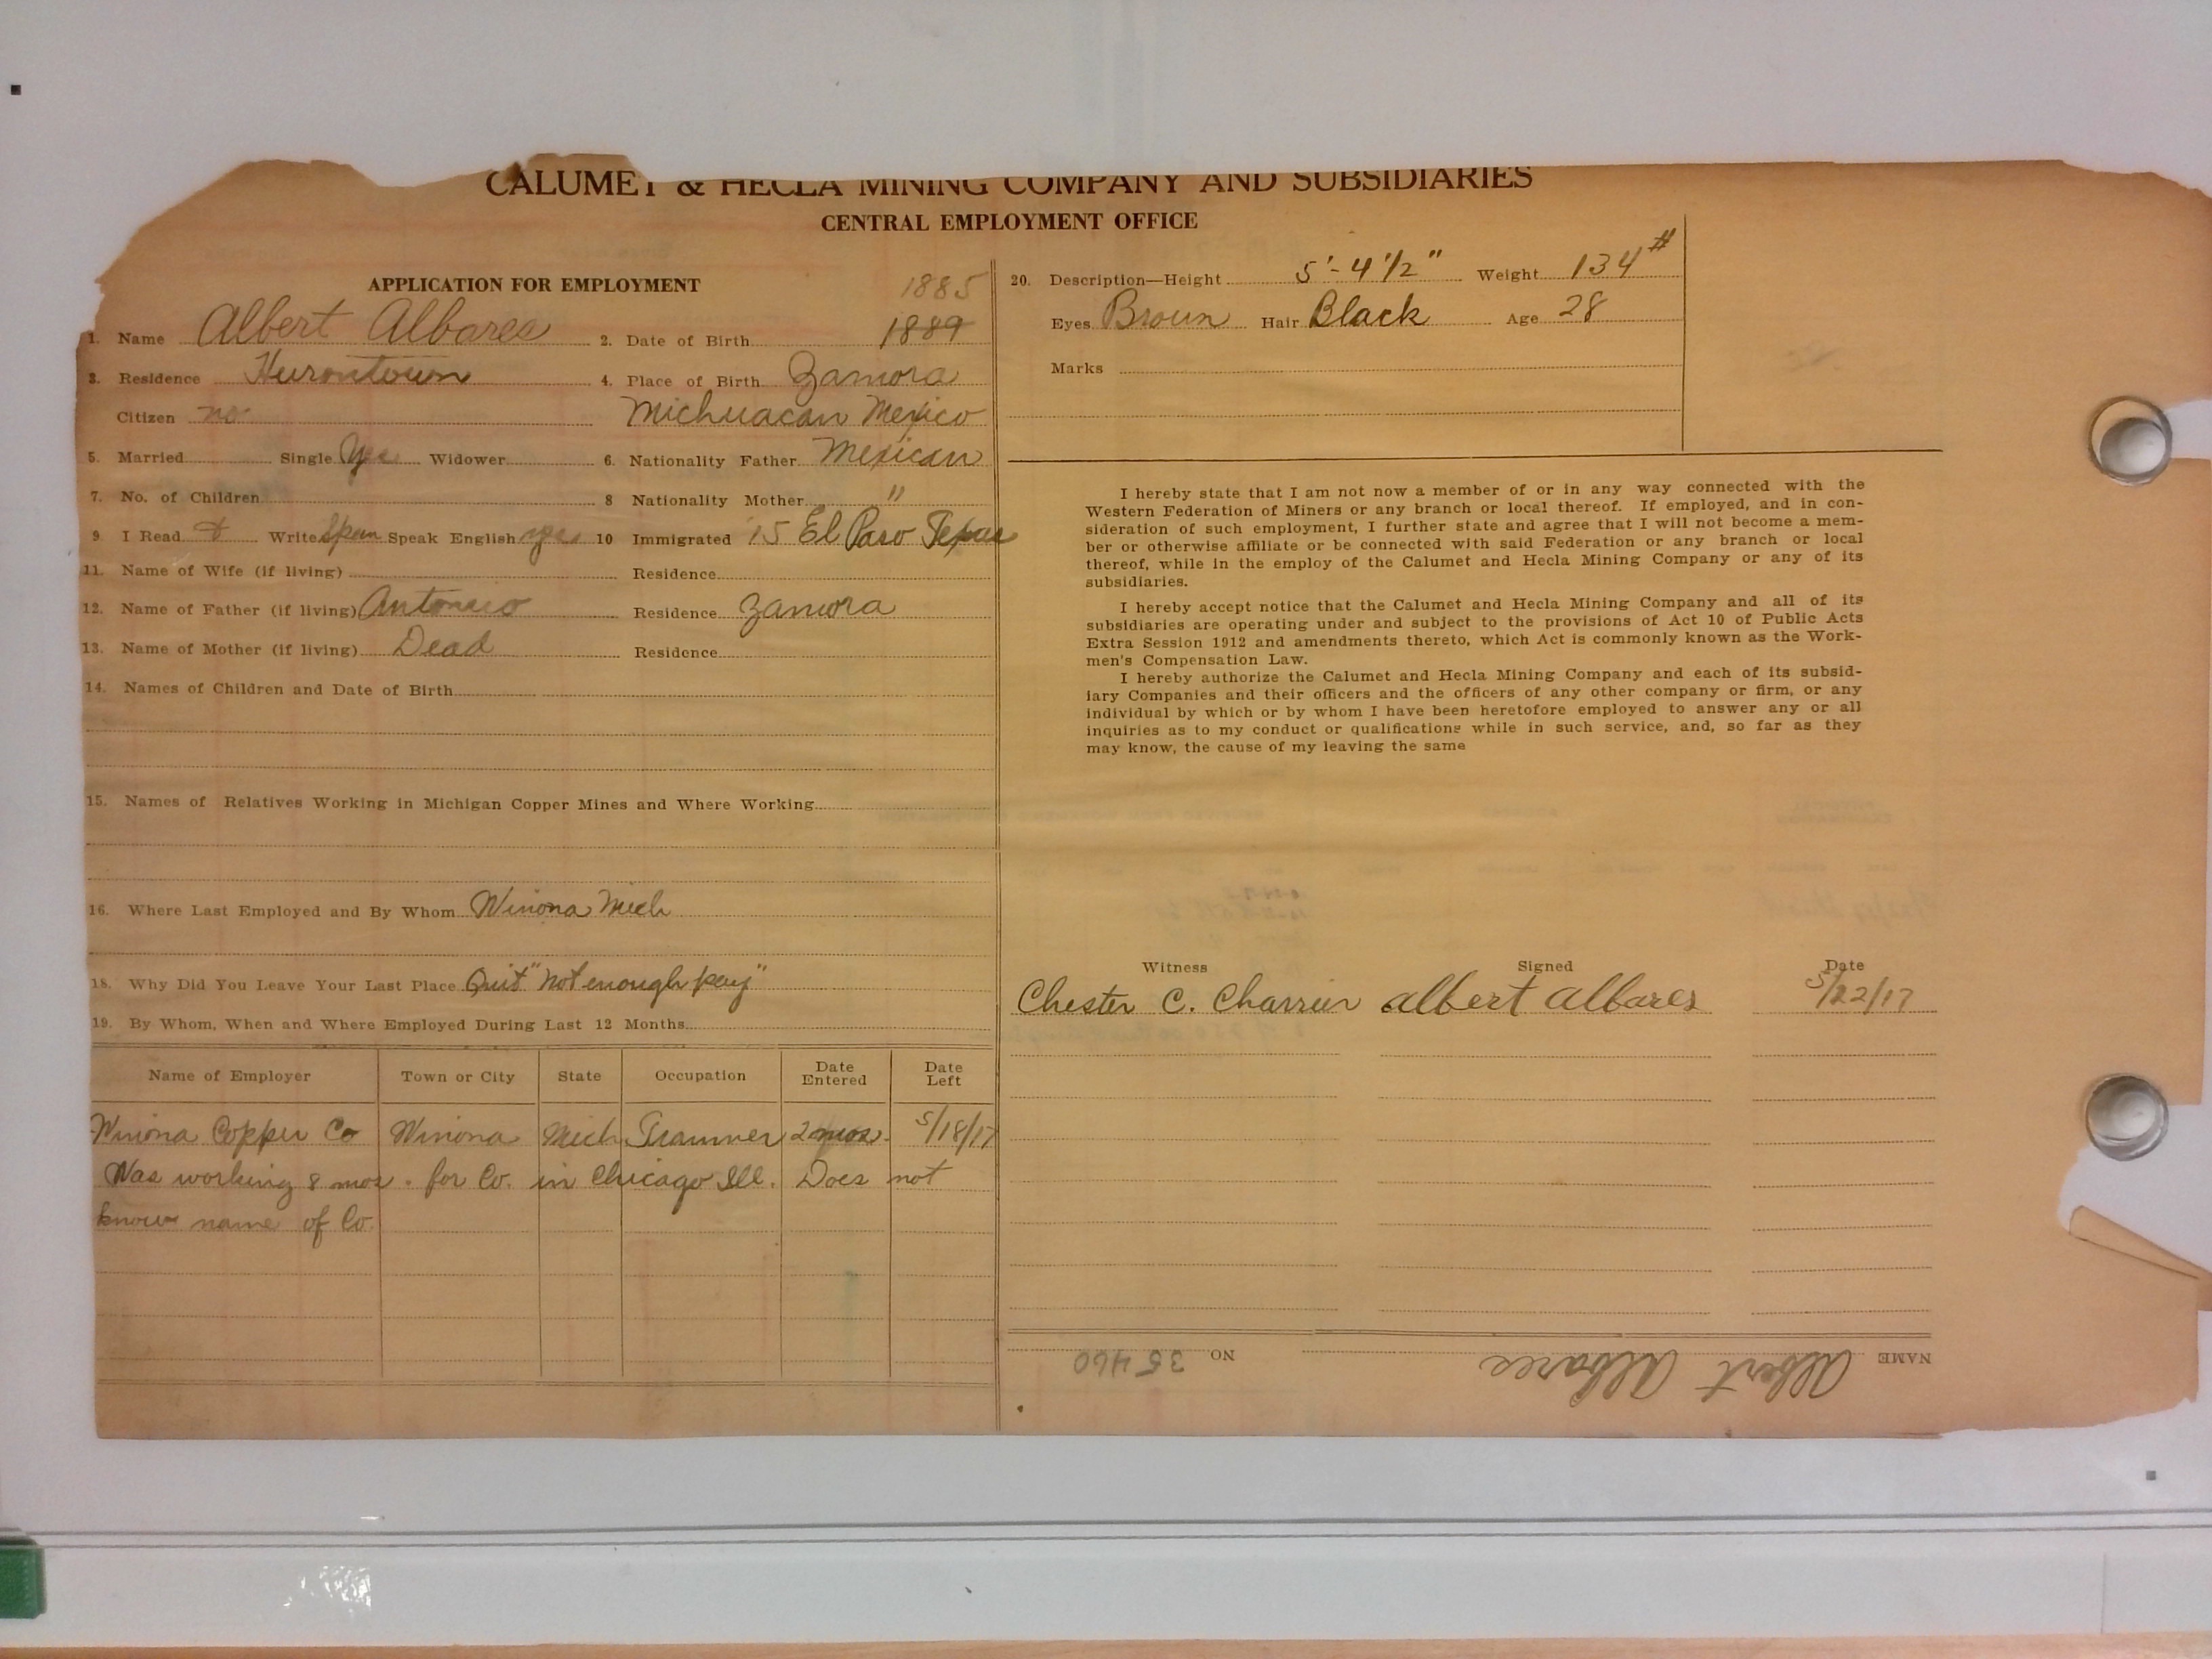 CALUMET & HECLA MINING COMPANY AND SUBSIDIARIES
CENTRAL EMPLOYMENT OFFICE
APPLICATION FOR EMPLOYMENT
1885
1. Name Albert Albares 2. Date of Birth 1889
3. Residence Hurontown 4. Place of Birth Zamora
Citizen no Michuacan Mexico
5. Married Single Yes Widower 6. Nationality Father Mexican
7. No. of Children 8 Nationality Mother "
9 I Read & Write Span Speak English yes 10 Immigrated '15 El Paso Texas
11. Name of Wife (if living) Residence
12. Name of Father (if living) Antonio Residence Zamora
13. Name of Mother (if living) Dead Residence
14. Names of Children and Date of Birth
15. Names of Relatives Working in Michigan Copper Mines and Where Working
16. Where Last Employed and By Whom Winona Mich
18. Why Did You Leave Your Last Place Quit "Not enough pay"
19. By Whom, When and Where Employed During Last 12 Months
Name of Employer Town or City State Occupation Date Entered Date Left
Winona Copper Co Winona Mich Trammer 2 mos. 5/18/17
Was working 8 mos. for Co. in Chicago Ill. Does not
know name of Co.
20. Description—Height 5'-4 1/2" Weight 134#
Eyes Brown Hair Black Age 28
Marks
I hereby state that I am not now a member of or in any way connected with the
Western Federation of Miners or any branch or local thereof. If employed, and in con-
sideration of such employment, I further state and agree that I will not become a mem-
ber or otherwise affiliate or be connected with said Federation or any branch or local
thereof, while in the employ of the Calumet and Hecla Mining Company or any of its
subsidiaries.
I hereby accept notice that the Calumet and Hecla Mining Company and all of its
subsidiaries are operating under and subject to the provisions of Act 10 of Public Acts
Extra Session 1912 and amendments thereto, which Act is commonly known as the Work-
men's Compensation Law.
I hereby authorize the Calumet and Hecla Mining Company and each of its subsid-
iary Companies and their officers and the officers of any other company or firm, or any
individual by which or by whom I have been heretofore employed to answer any or all
inquiries as to my conduct or qualifications while in such service, and, so far as they
may know, the cause of my leaving the same
Witness Signed Date
Chester C. Charrier albert albares 5/22/17
NAME Albert Albares NO 35460